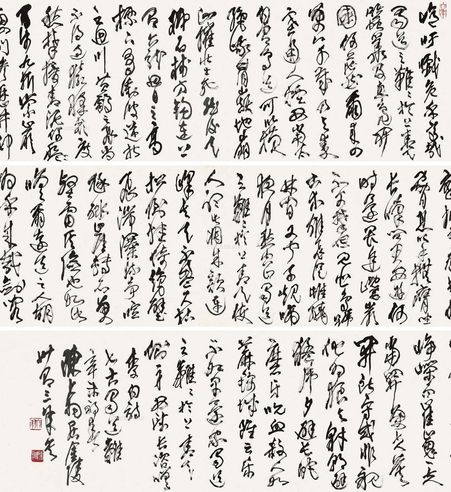 噫吁嚱危乎高哉
蜀道之難難於上青天
蠶叢及魚鳧開
國何茫然爾來四
萬八千歲不與秦
塞通人煙西當太
白有鳥道可以橫
絕峨眉巔地崩
山摧壯士死然後天
梯石棧相鉤連上
有六龍回日之高
標下有衝波逆折
之回川黃鶴之飛尚
不得過猿猱欲度
愁攀援青泥何盤
百步九折縈巖
巒捫參歷井仰
脅息以手撫膺坐
長嘆問君西遊何
時還畏途巉巖
不可攀但見悲鳥
號古木雄飛雌從繞
林間又聞子規啼
夜月愁空山蜀道
之難難於上青天使
人聽此凋朱顏連
峰去天不盈尺枯
松倒掛倚絕壁
飛湍瀑流爭喧
豗砯崖轉石萬
壑雷其險也如此
嗟爾遠道之人胡
為乎來哉劍閣
崢嶸而崔嵬一夫
當關萬夫莫
開所守或匪親
化為狼與豺朝避
猛虎夕避長蛇
磨牙吮血殺人如
麻錦城雖云樂
不如早還家蜀道
之難難於上青天
側身西望長咨嗟
李白詩
七古蜀道難
辛未